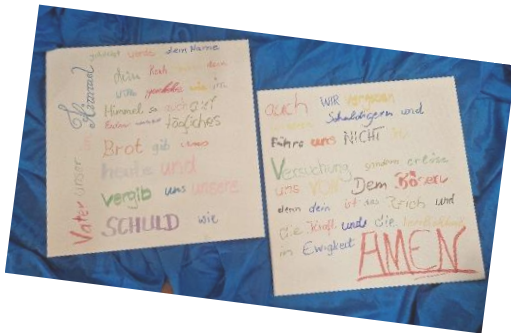 Vater unser im
Himmel
geheiligt werde dein Name
dein Reich dein
uns wie im
Himmel so auch auf
Erden unser tägliches
Brot gib uns
heute und
vergib uns unsere
SCHULD wie
auch WIR vergeben
Schuldigern und
Führe uns NICHT in
Versuchung sondern erlöse
uns VON Dem Bösen
denn dein ist das Reich und
die Kraft und die Herrlichkeit
in Ewigkeit AMEN